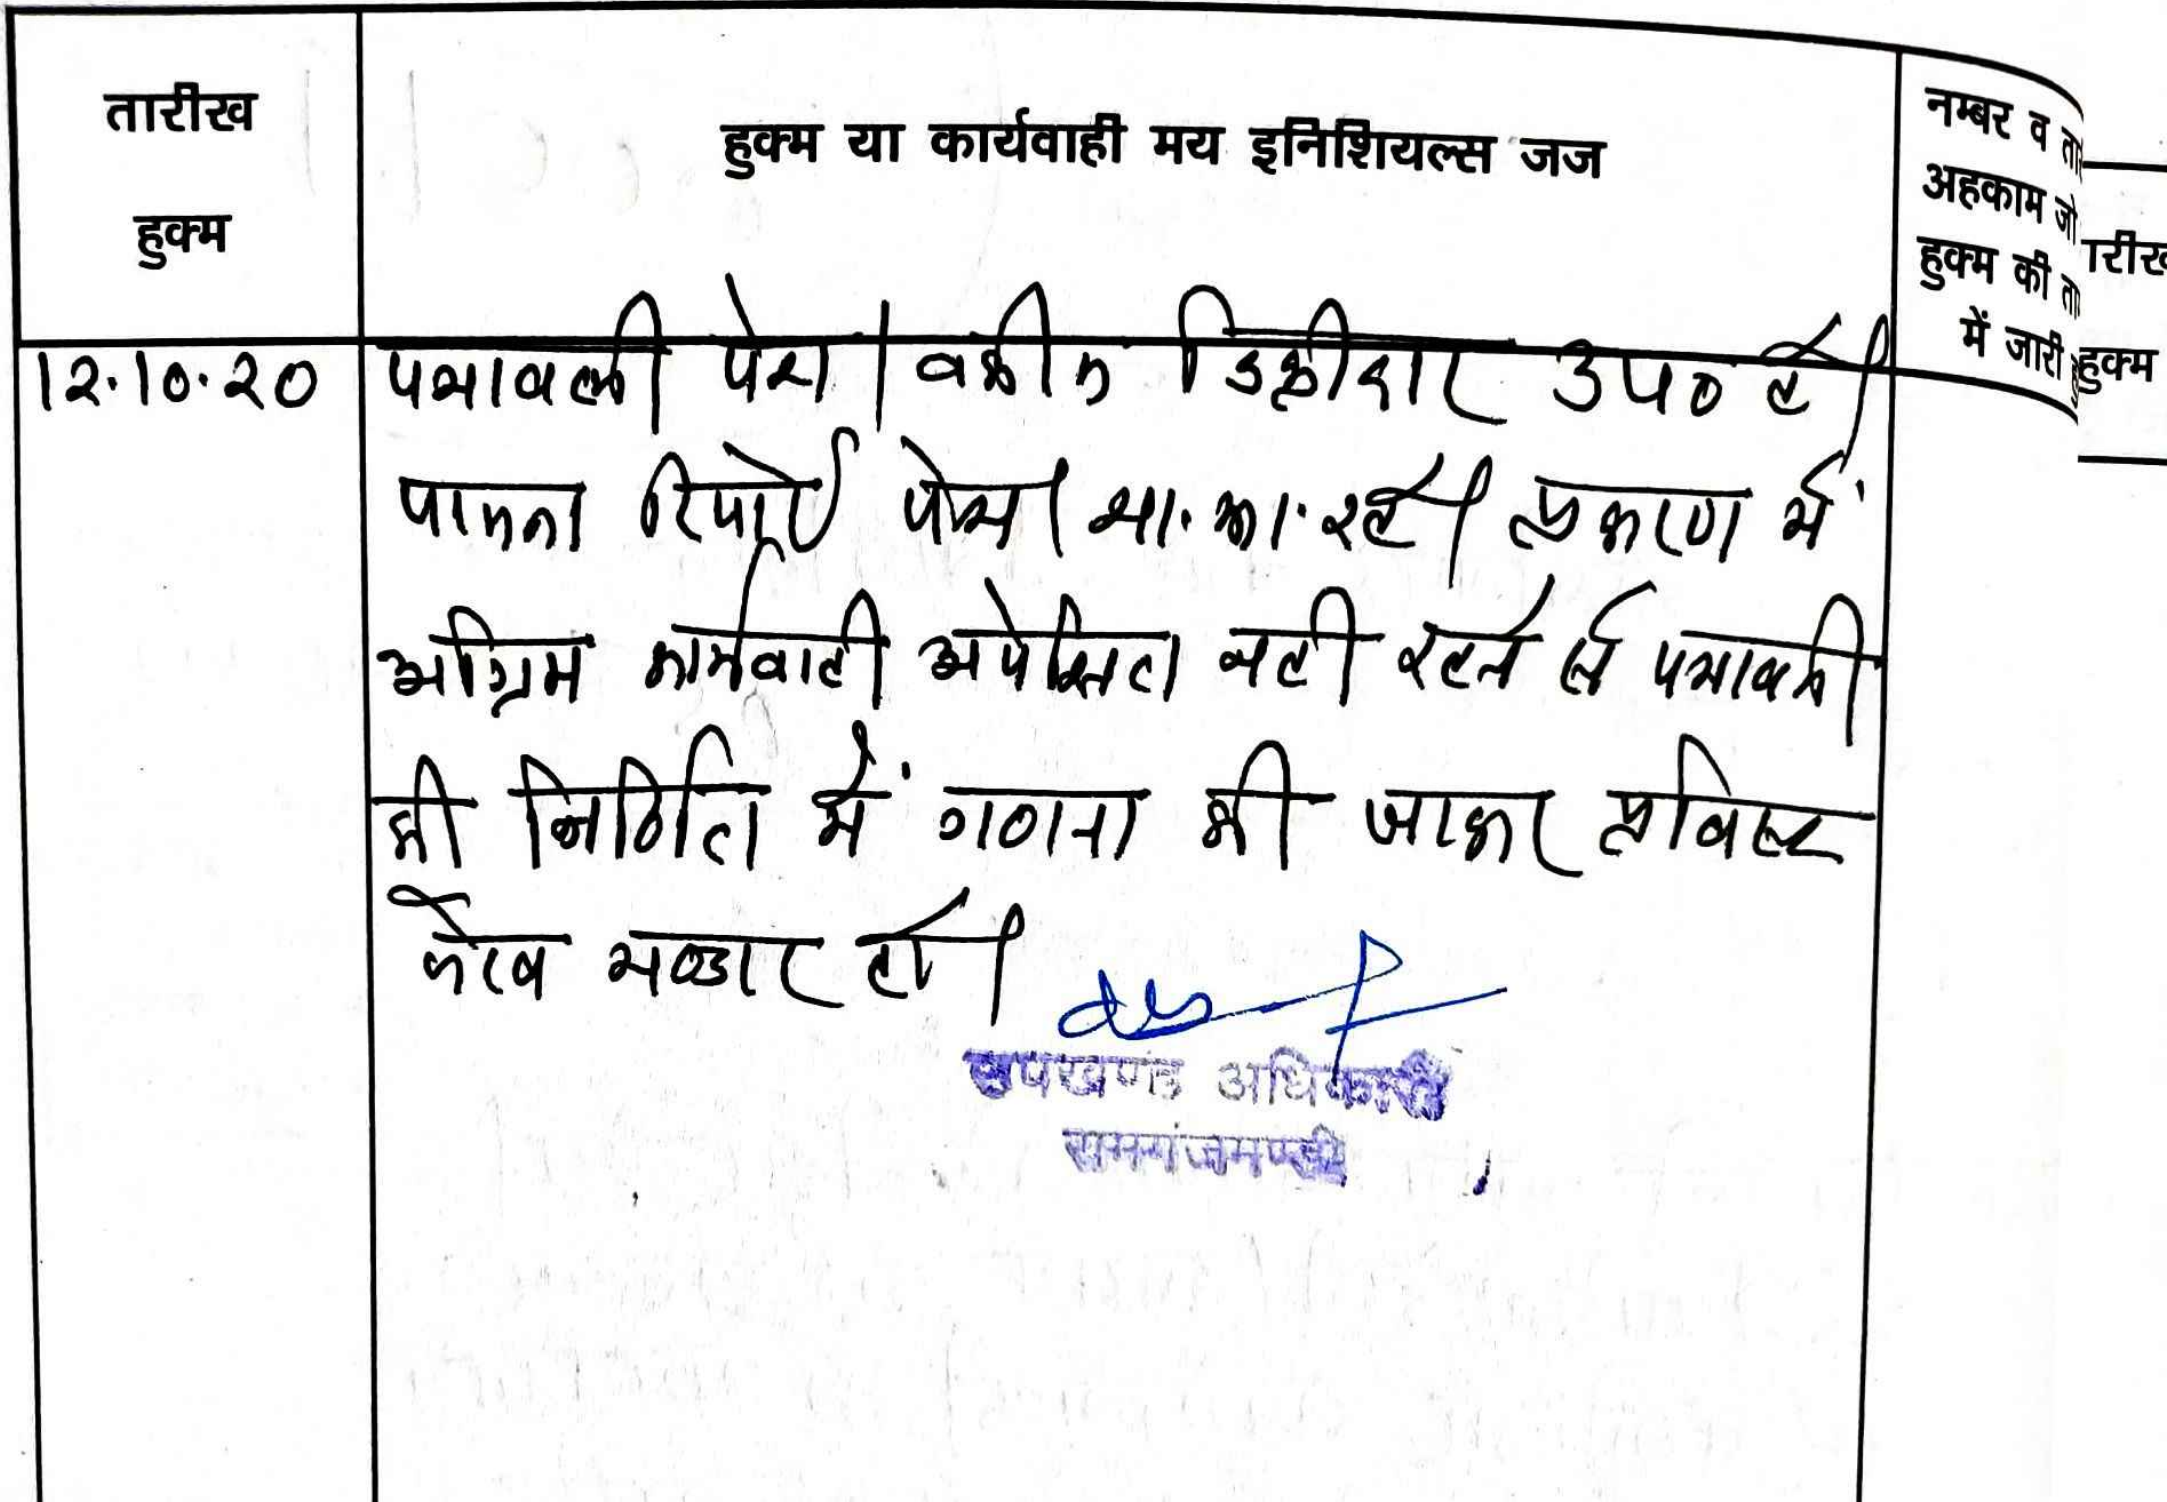 तारीख
हुक्म
हुक्म या कार्यवाही मय इनिशियल्स जज
नम्बर व
अहकाम जो
हुक्म की
में जारी
हुक्म
12.10.20
पत्रावली पेश। वकील डिक्रीदार उप० है।
पालना रिपोर्ट पेश। शा.का.रहे। प्रकरण में
अग्रिम कार्यवाही अपेक्षित नही रहने से पत्रावली
की निर्णित में गणना की जाकर प्रविष्ट
लेख भण्डार हो।
उपखण्ड अधिकारी
रामगंजमण्डी